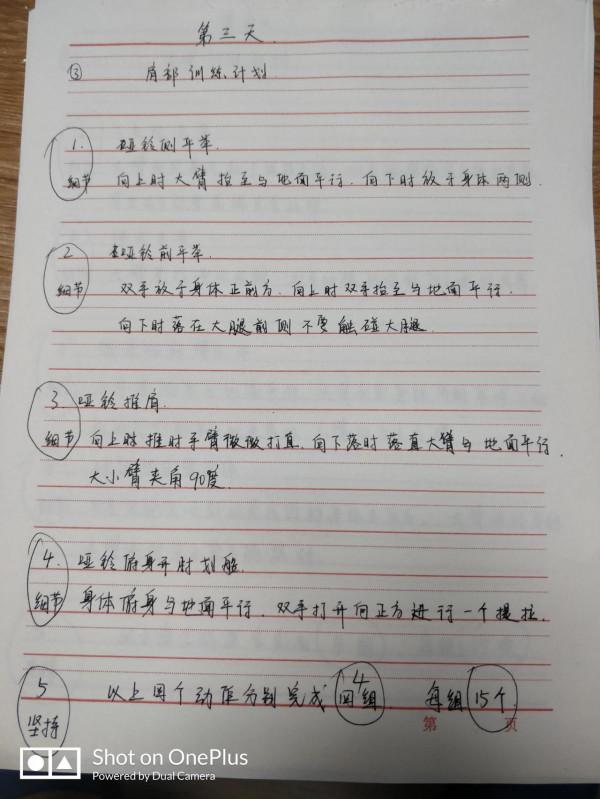 第三天.
③ 肩部训练计划
1. 哑铃侧平举.
细节 向上时大臂抬至与地面平行. 向下时放于身体两侧.
2 哑铃前平举.
细节 双手放于身体正前方. 向上时双手抬至与地面平行.
向下时落在大腿前侧不要触碰大腿.
3. 哑铃推肩.
细节 向上时推时手臂微微打直. 向下落时落直大臂与地面平行.
大小臂夹角90度.
4. 哑铃俯身开肘划船.
细节 身体俯身与地面平行. 双手打开向正方进行一个提拉.
5 以上四个动作分别完成 四组4 每组15个
坚持
第 页
Shot on OnePlus
Powered by Dual Camera